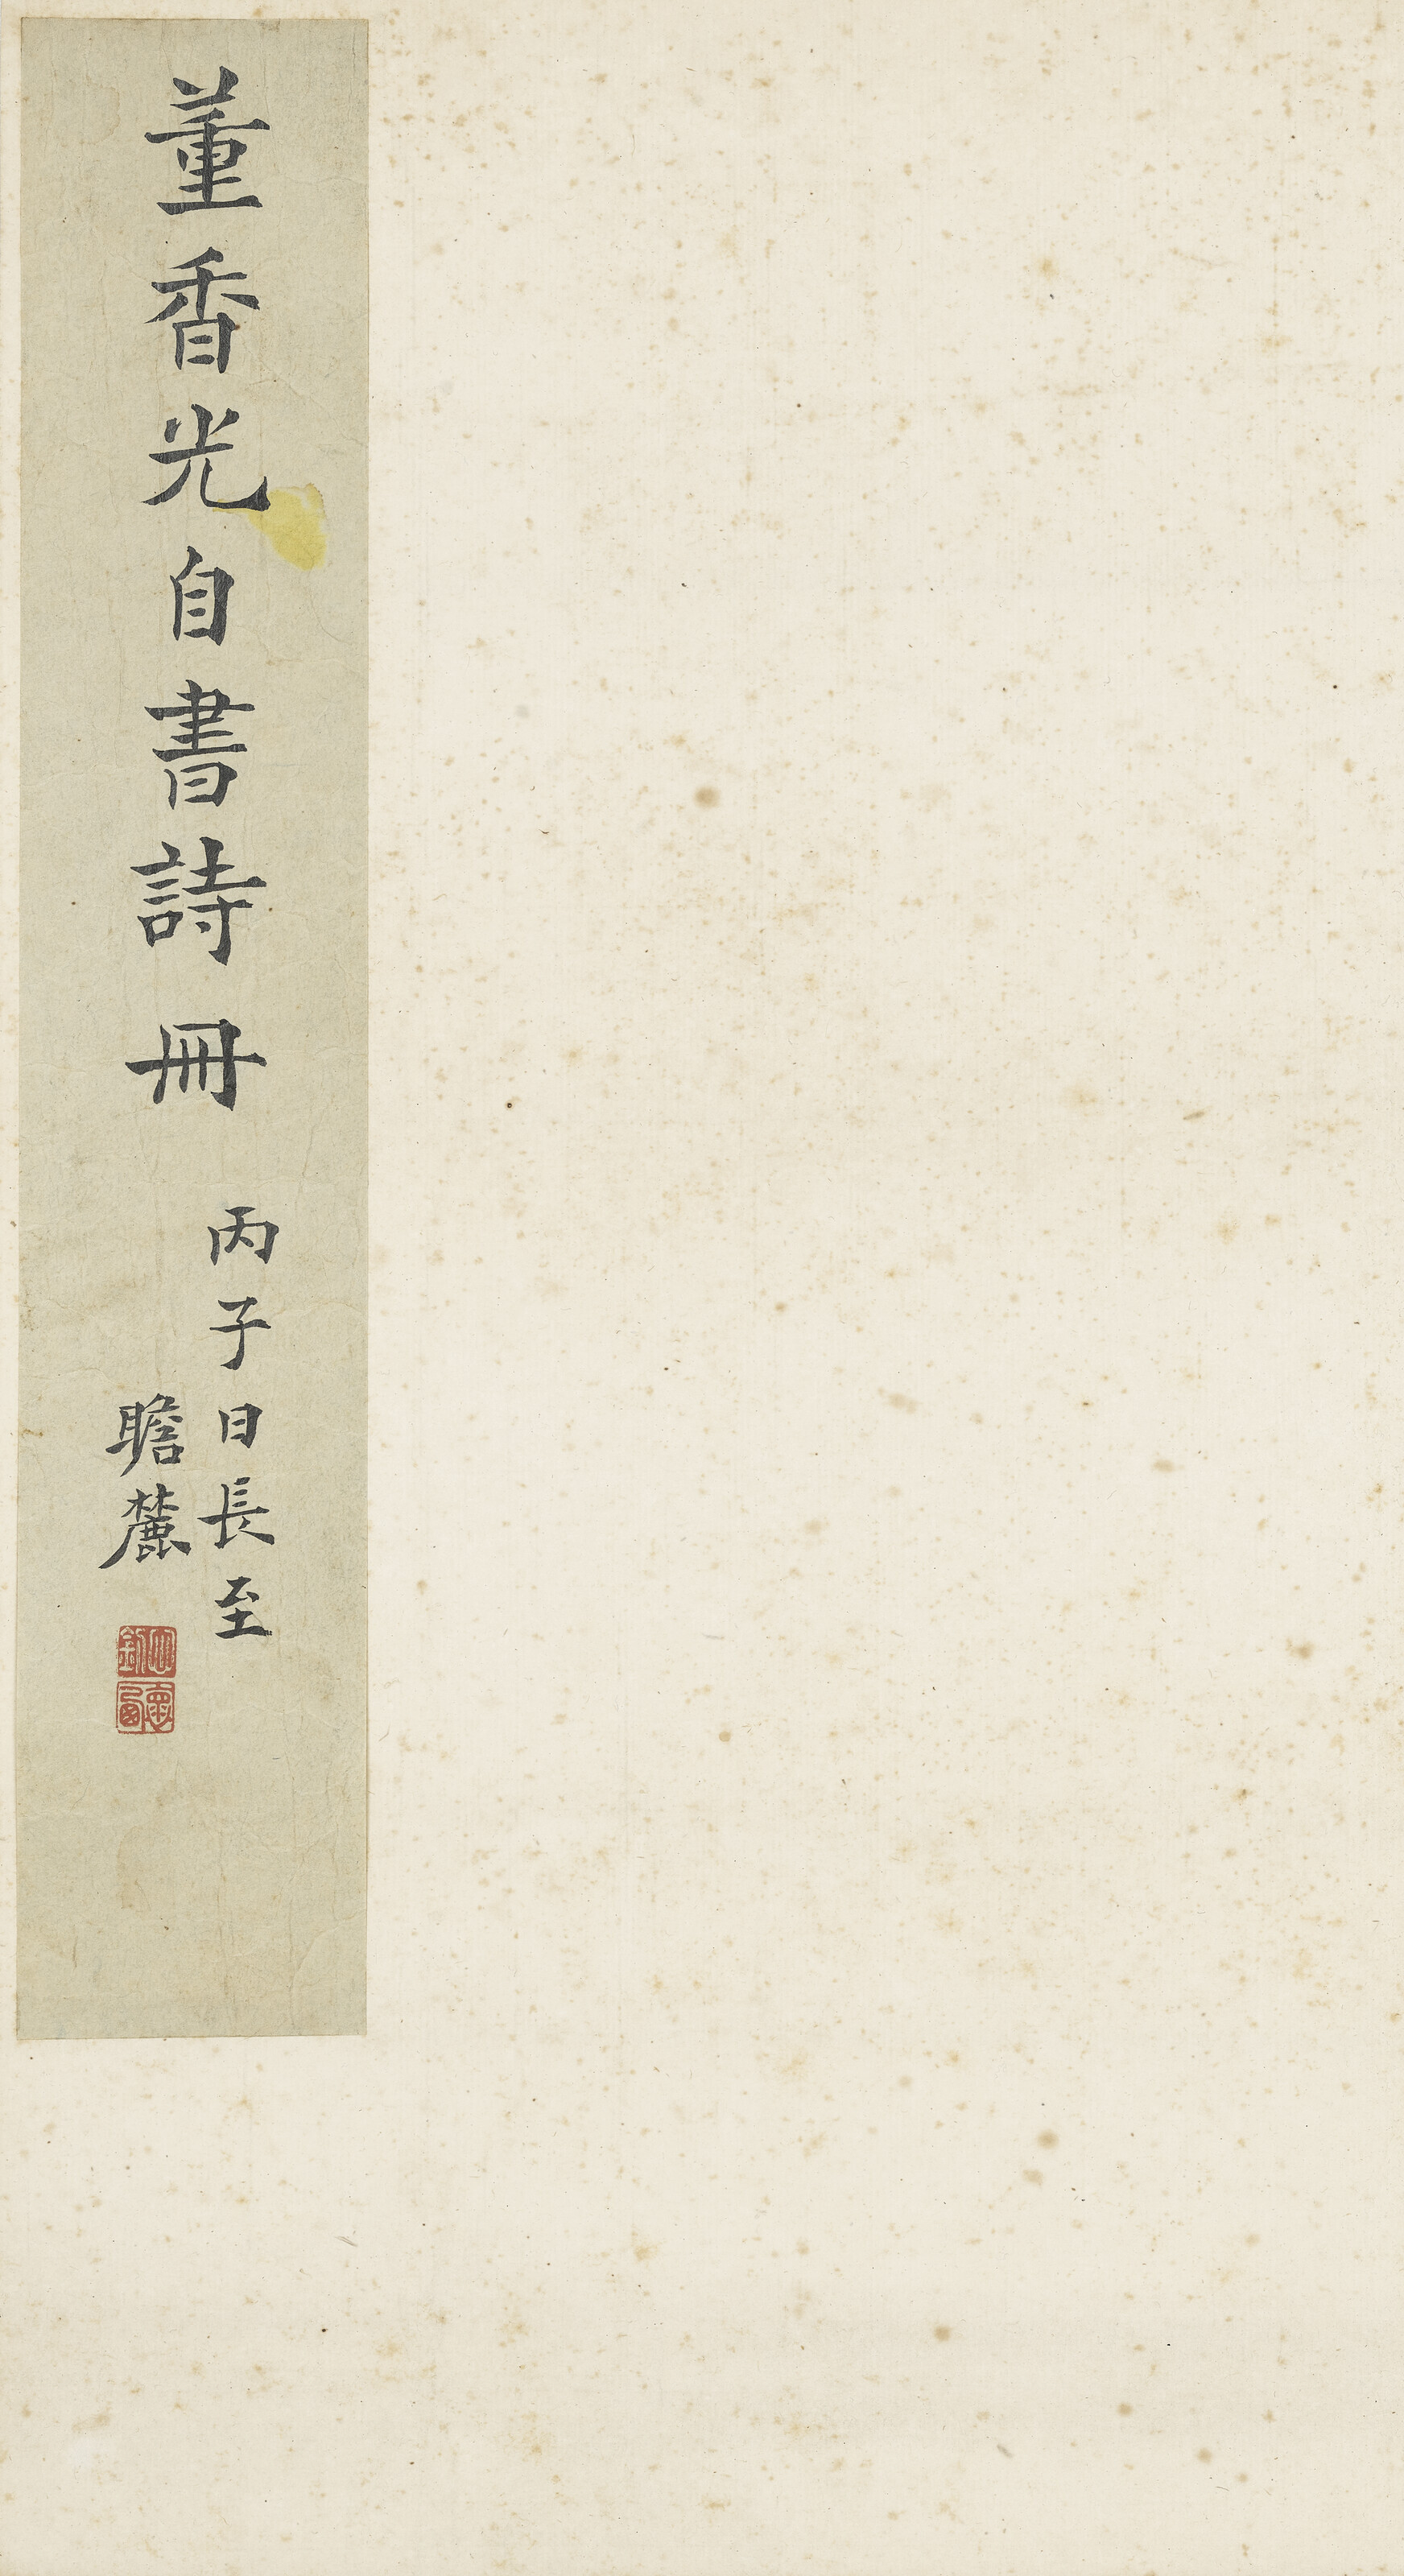 董香光自書詩冊
丙子日長至
瞻麓